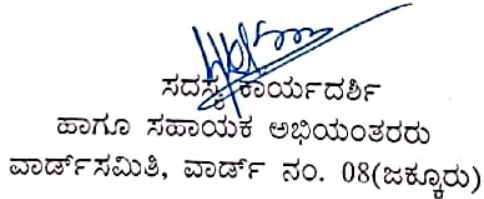 ಸದಸ್ಯ ಕಾರ್ಯದರ್ಶಿ
ಹಾಗೂ ಸಹಾಯಕ ಅಭಿಯಂತರರು
ವಾರ್ಡ್‌ಸಮಿತಿ, ವಾರ್ಡ್ ನಂ. 08(ಜಕ್ಕೂರು)